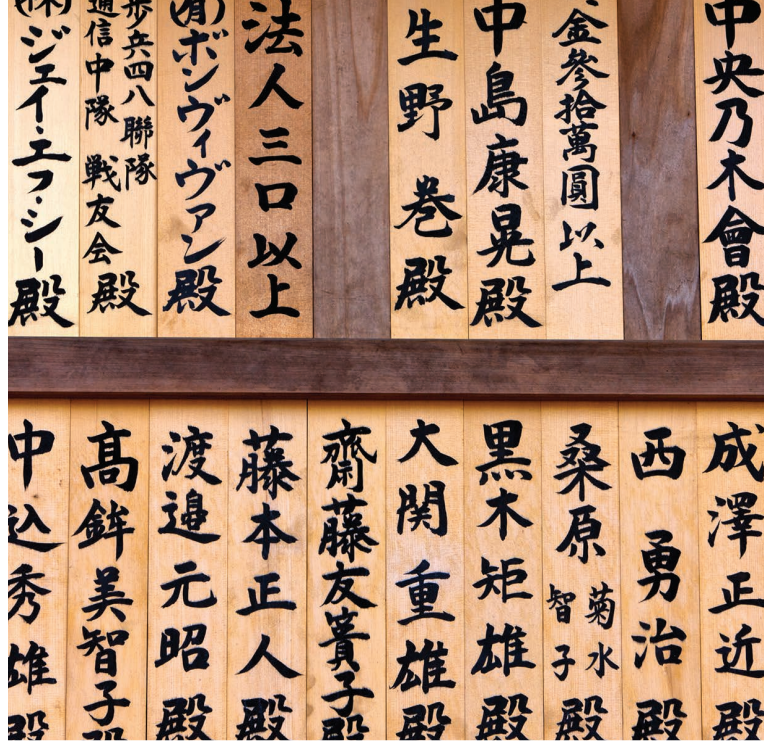 中央乃木會殿
金參拾萬圓以上
中島康晃殿
生野 巻殿
法人三口以上
(有)ボンヴィヴァン殿
歩兵四八聯隊
通信中隊 戦友会 殿
(株)ジェイ・エフ・シー殿
成澤正近殿
西 勇治殿
桑原 菊水 智子 殿
黒木矩雄殿
大関重雄殿
齋藤友簀子殿
藤本正人殿
渡邉元昭殿
髙鉾美智子殿
中込秀雄殿